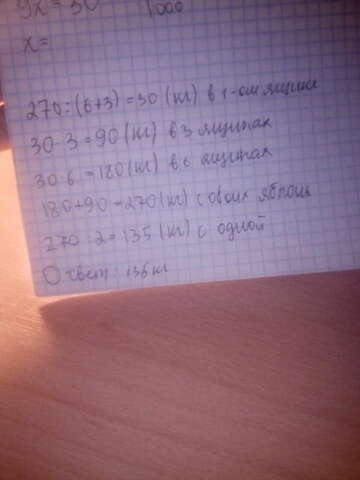 9х = 30 1000
х =
270 : (6+3) = 30 (кг) в 1-ом ящике
30 · 3 = 90 (кг) в 3 ящиках
30 · 6 = 180 (кг) в 6 ящиках
180 + 90 = 270 (кг) с двоих яблонь
270 : 2 = 135 (кг) с одной
Ответ: 136 кг